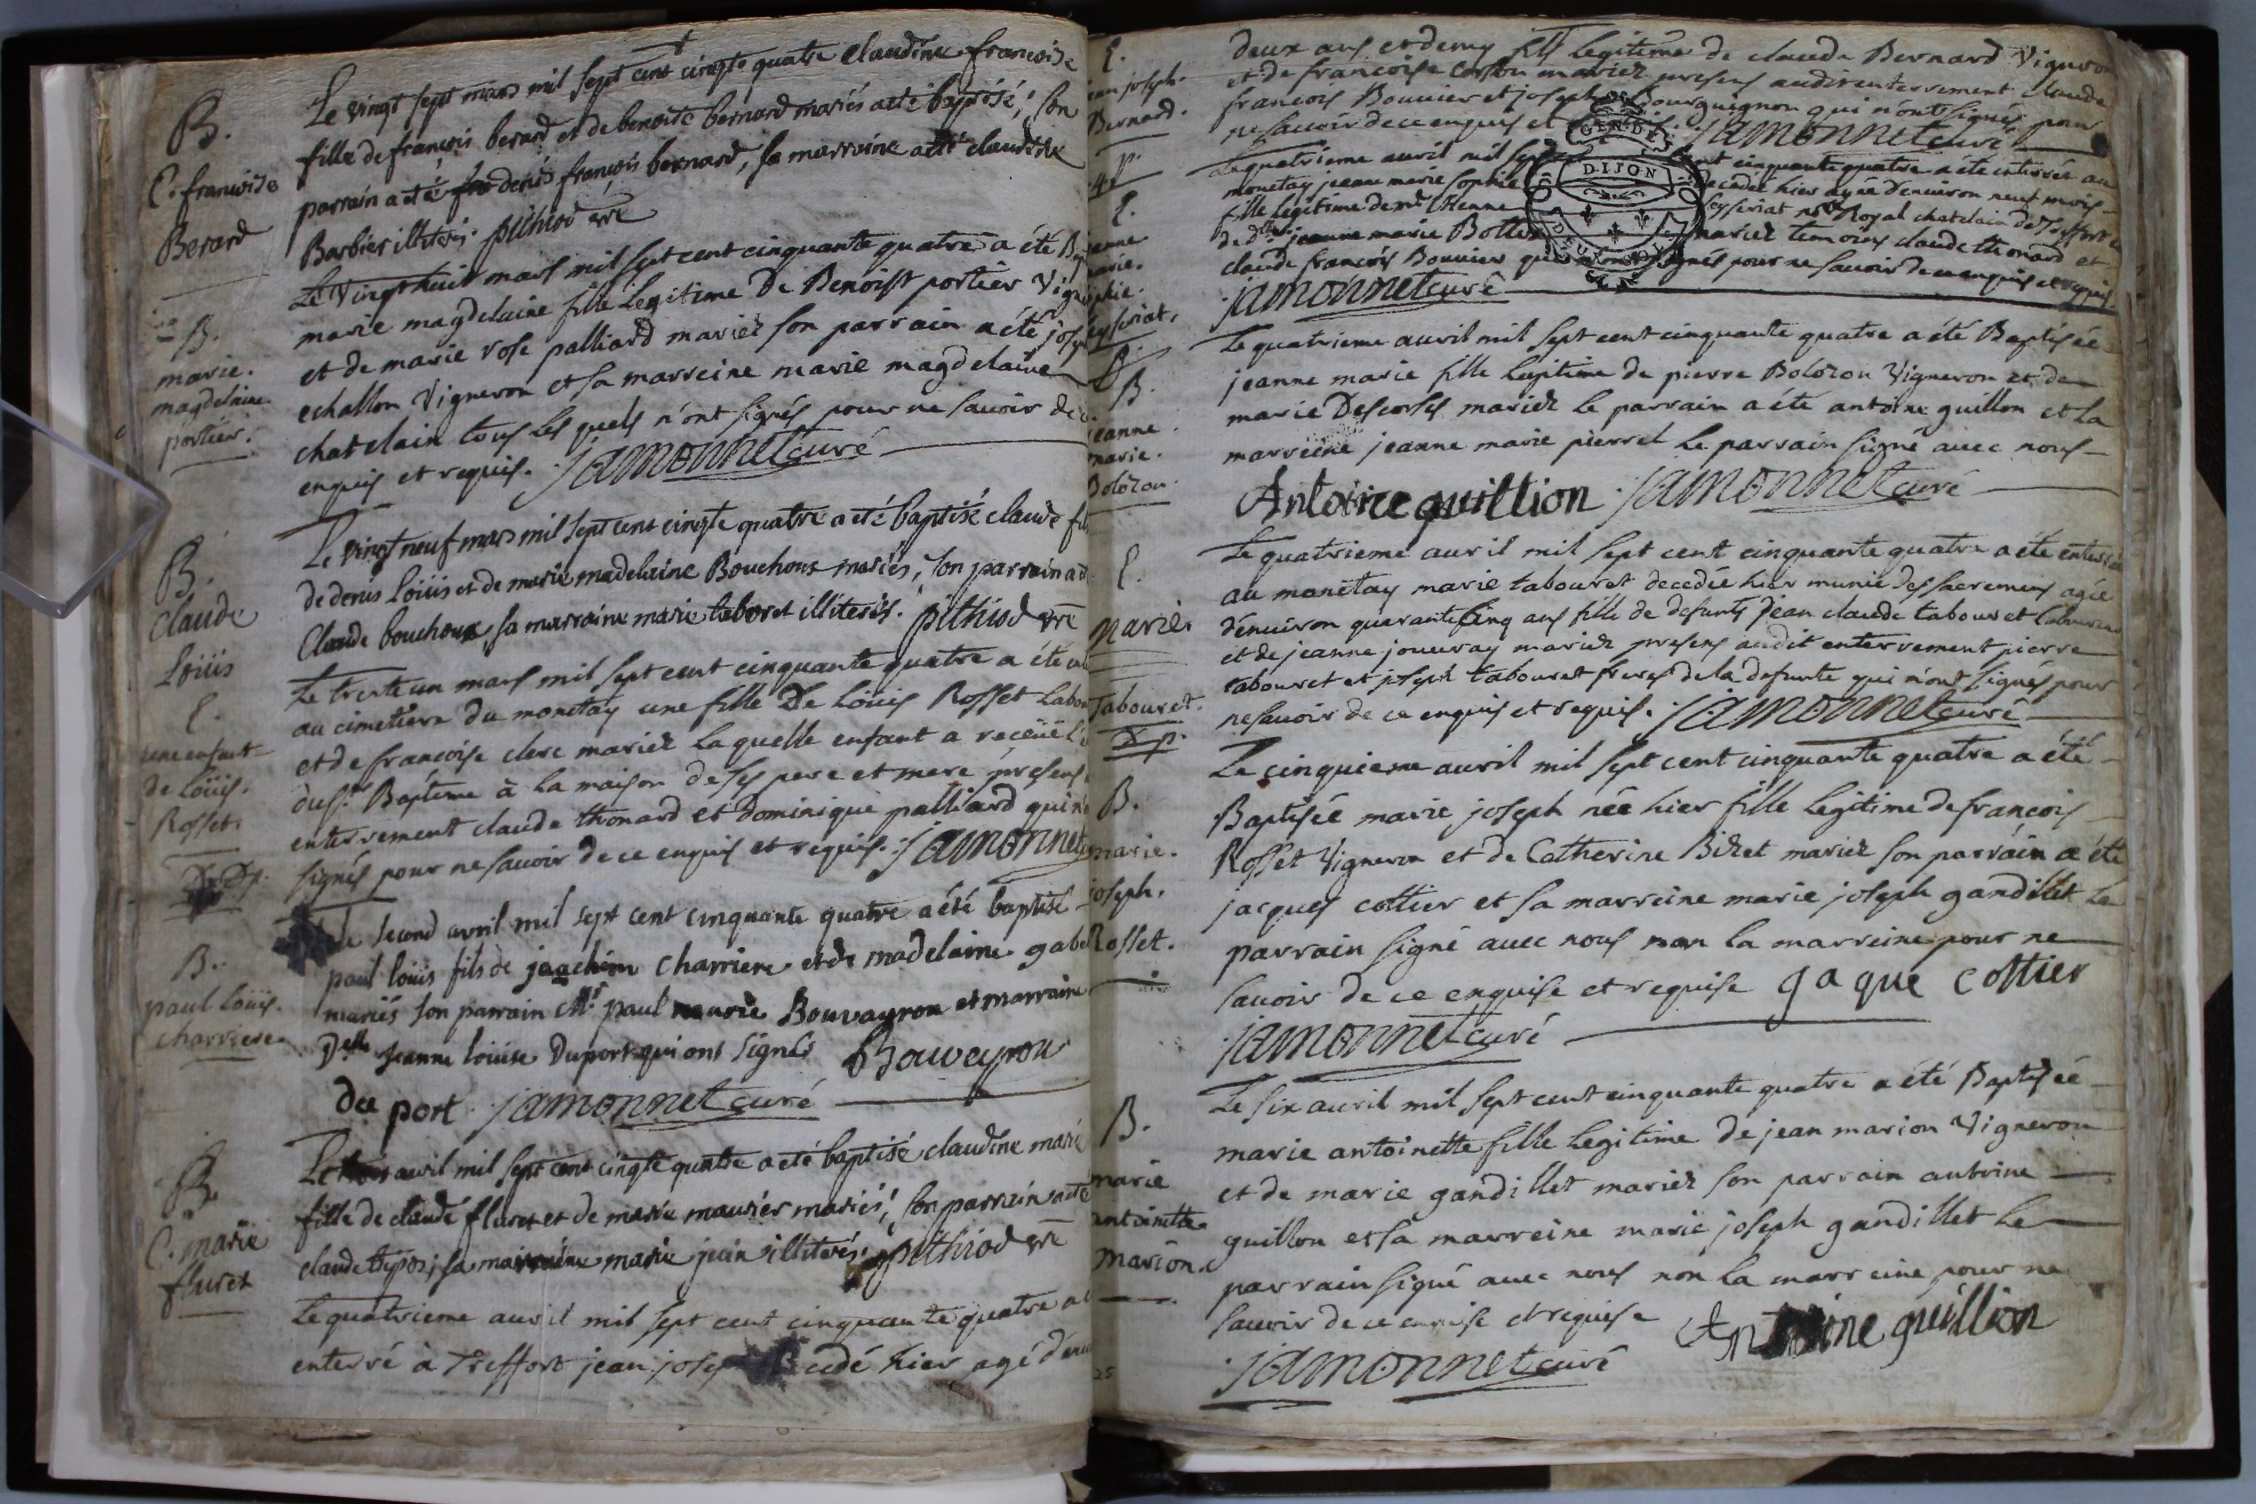 B.
C. francoise
Berard
Le vingt sept mars mil sept cent cinqte quatre claudine francoise
fille de francois berard et de benoite bernard mariés a eté baptisé, son
parrain a eté denis françois bernard, sa marraine a eté claudine
Barbier illiterés. pithiod vre
B.
marie.
magdelaine
portier.
Le Vingt huit mars mil sept cent cinquante quatre a été
marie magdelaine fille legitime De Benoist portier
et de marie rose palliard mariez son parrain a été
echallon Vigneron et sa marreine marie magdelaine
chatelain tous les quels n'ont signés pour ne savoir de
enquis et requis. jamonnet curé
B.
claude
Loüis
Le vingt neuf mars mil sept cent cinqte quatre a eté baptisé claude
de denis Loüis et de marie madelaine Bouchoux mariés, son parrain
Claude bouchoux, sa marraine marie taboret illiterés. pithiod vre
E.
une enfant
de Loüis.
Rosset.
Dp.
Le trente un mars mil sept cent cinquante quatre a été
au cimetiere du monetay une fille De Loüis Rosset
et de francoise clerc mariez la quelle enfant a receüe
dus. Baptême à la maison de ses pere et mere presens
enterrement claude thonard et dominique palliard qui
signés pour ne savoir de ce enquis et requis. jamonnet
B.
paul Loüis.
charriere.
Le second avril mil sept cent cinquante quatre a été baptisé
paul loüis fils de joachim charriere et de madelaine
mariés son parrain Mr paul marie Bouvayron et marraine
Delle Jeanne loüise Duport qui ont signés Bouvayron
du port jamonnet curé
B.
C. marie
fluret
Le trois avril mil sept cent cinqte quatre a eté baptisé claudine marie
fille de claude fluret et de marie maurier mariés, son parrain a eté
claude, sa marraine marie juin illiterés. pithiod vre
Le quatrieme auril mil sept cent cinquante quatre a
enterré à Treffort jean decedé hier agé
E.
jean joseph.
Bernard.
deux ans et demy fils legitime de claude Bernard Vigneron
et de francoise mariez presens audit enterrement claude
francois Bouvier et joseph Bourguignon qui n'ont signés pour
ne savoir de ce enquis et jamonnet curé
E.
jeanne
marie.
sophie.
Le quatrieme auril mil sept cent cinquante quatre a été enterrée au
monetay jeanne marie sophie decedée hier agée d'environ neuf mois
fille legitime de Mr Etienne Royal chatelain de Treffort
de dlle jeanne marie mariez temoins claude thonard et
claude francois Bouvier signés pour ne savoir de ce enquis et requis
jamonnet curé
GEN. DE
DIJON
B.
jeanne.
marie.
Bolozon.
Le quatrieme auril mil sept cent cinquante quatre a été Baptisée
jeanne marie fille legitime de pierre Bolozon Vigneron et de
marie Descostes mariez le parrain a été antoine guillon et la
marreine jeanne marie pierrel le parrain signé avec nous
Antoine guillion jamonnet curé
E.
Marie.
Tabouret.
Dp.
Le quatrieme auril mil sept cent cinquante quatre a été enterrée
au monetay marie tabouret decedée hier munie des sacremens agée
d'environ quarante cinq ans fille de defunts jean claude tabouret
et de jeanne jouvray mariez presens audit enterrement pierre
tabouret et joseph tabouret freres de la defunte qui n'ont signés pour
ne savoir de ce enquis et requis. jamonnet curé
B.
marie.
joseph.
Rosset.
Le cinquieme auril mil sept cent cinquante quatre a été
Baptisée marie joseph née hier fille legitime de francois
Rosset Vigneron et de Catherine Bizet mariez son parrain a été
jacques cottier et sa marreine marie joseph gandillet le
parrain signé avec nous non la marreine pour ne
savoir de ce enquise et requise Jaque Cottier
jamonnet curé
B.
marie
antoinette.
Marion.
Le six auril mil sept cent cinquante quatre a été Baptisée
marie antoinette fille legitime de jean marion Vigneron
et de marie gandillet mariez son parrain antoine
guillon et sa marreine marie joseph gandillet le
parrain signé avec nous non la marreine pour ne
savoir de ce enquise et requise Antoine guillion
jamonnet curé
25